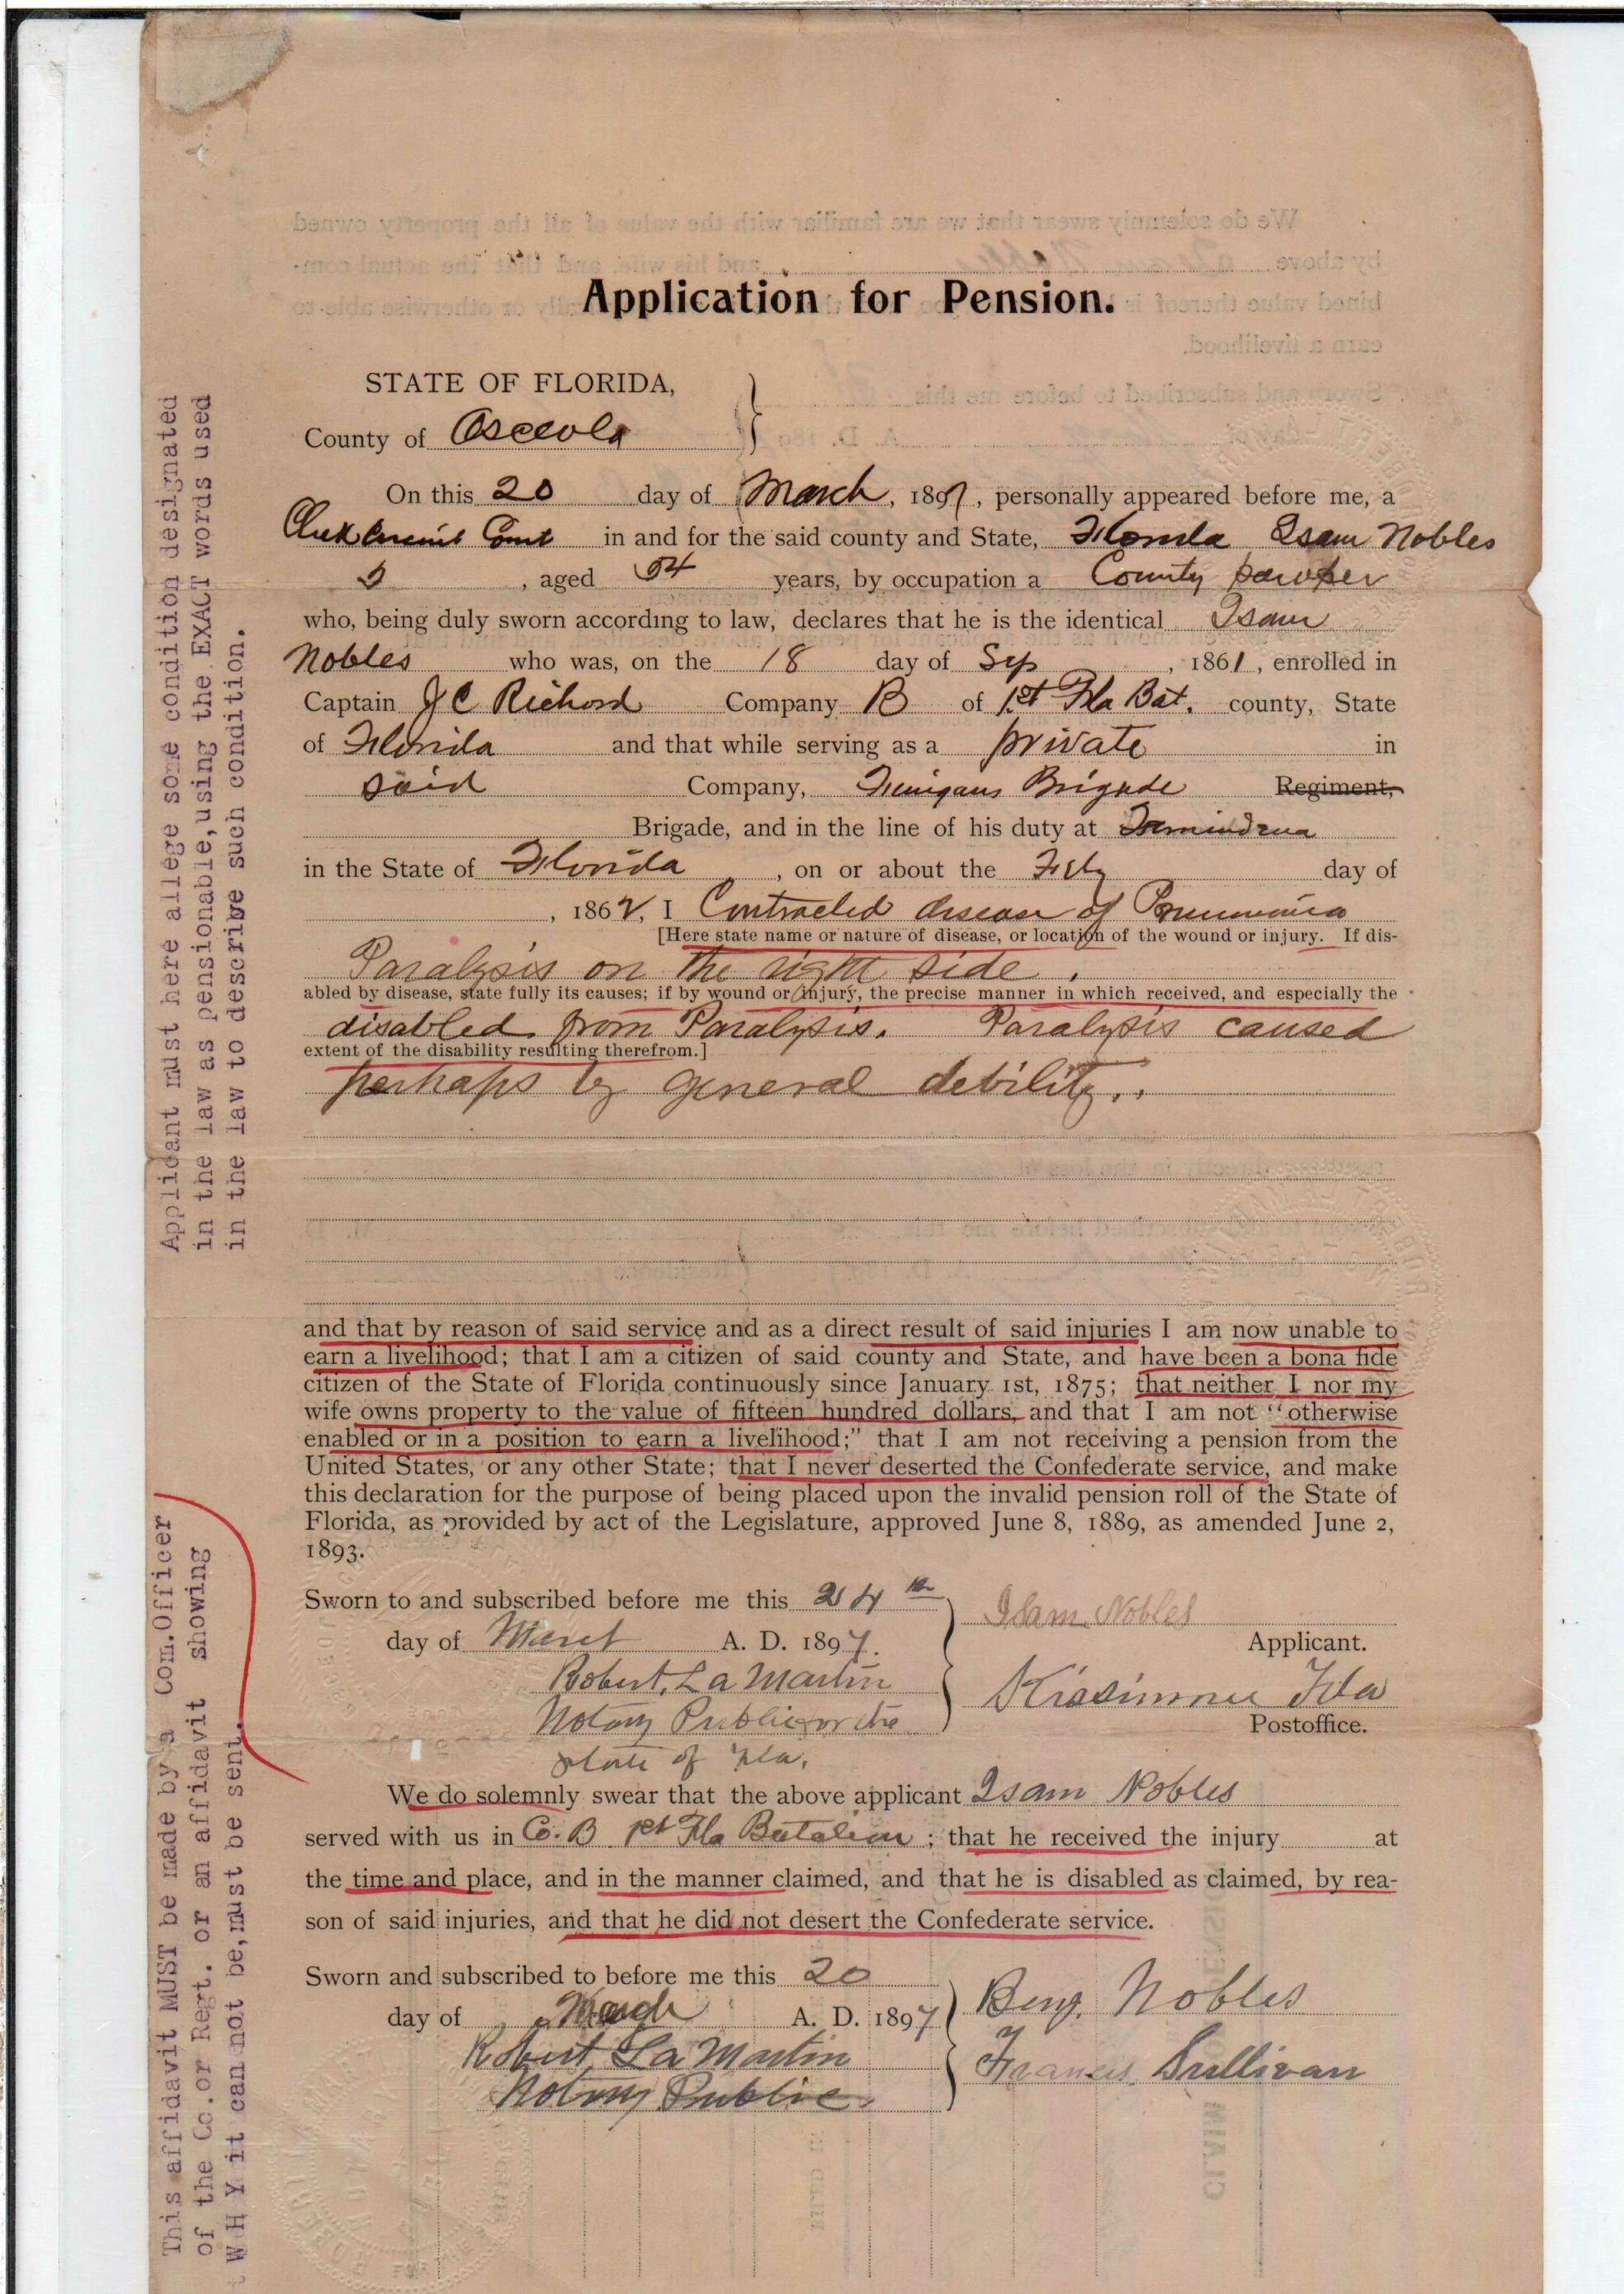 Application for Pension.
STATE OF FLORIDA,
County of Osceola
On this 20 day of March, 1897, personally appeared before me, a
Clerk Circuit Court in and for the said county and State, Florida Isam Nobles
, aged 54 years, by occupation a County pauper
who, being duly sworn according to law, declares that he is the identical Isam
Nobles who was, on the 18 day of Sep, 1861, enrolled in
Captain J C Richard Company B of 1st Fla Bat. county, State
of Florida and that while serving as a private in
said Company, Finigans Brigade Regiment,
Brigade, and in the line of his duty at
in the State of Florida, on or about the day of
, 1862, I Contracted disease of Pneumonia
[Here state name or nature of disease, or location of the wound or injury. If dis-
Paralysis on the right side.
abled by disease, state fully its causes; if by wound or injury, the precise manner in which received, and especially the
disabled from Paralysis. Paralysis caused
extent of the disability resulting therefrom.]
perhaps by general debility..
and that by reason of said service and as a direct result of said injuries I am now unable to
earn a livelihood; that I am a citizen of said county and State, and have been a bona fide
citizen of the State of Florida continuously since January 1st, 1875; that neither I nor my
wife owns property to the value of fifteen hundred dollars, and that I am not "otherwise
enabled or in a position to earn a livelihood;" that I am not receiving a pension from the
United States, or any other State; that I never deserted the Confederate service, and make
this declaration for the purpose of being placed upon the invalid pension roll of the State of
Florida, as provided by act of the Legislature, approved June 8, 1889, as amended June 2,
1893.
Sworn to and subscribed before me this 24th
Isam Nobles
day of March A. D. 1897.
Applicant.
Robert. La Martin
Kissimmee Fla
Notary Public for the
Postoffice.
State of Fla.
We do solemnly swear that the above applicant Isam Nobles
served with us in Co. B 1st Fla Batalion; that he received the injury at
the time and place, and in the manner claimed, and that he is disabled as claimed, by rea-
son of said injuries, and that he did not desert the Confederate service.
Sworn and subscribed to before me this 20
Benj. Nobles
day of March A. D. 1897
Robert. La Martin
Francis Sullivan
Notary Public.
Applicant must here allege some condition designated
in the law as pensionable, using the EXACT words used
in the law to describe such condition.
This affidavit MUST be made by a Com. Officer
of the Co. or Regt. or an affidavit showing
W H Y it can not be, must be sent.